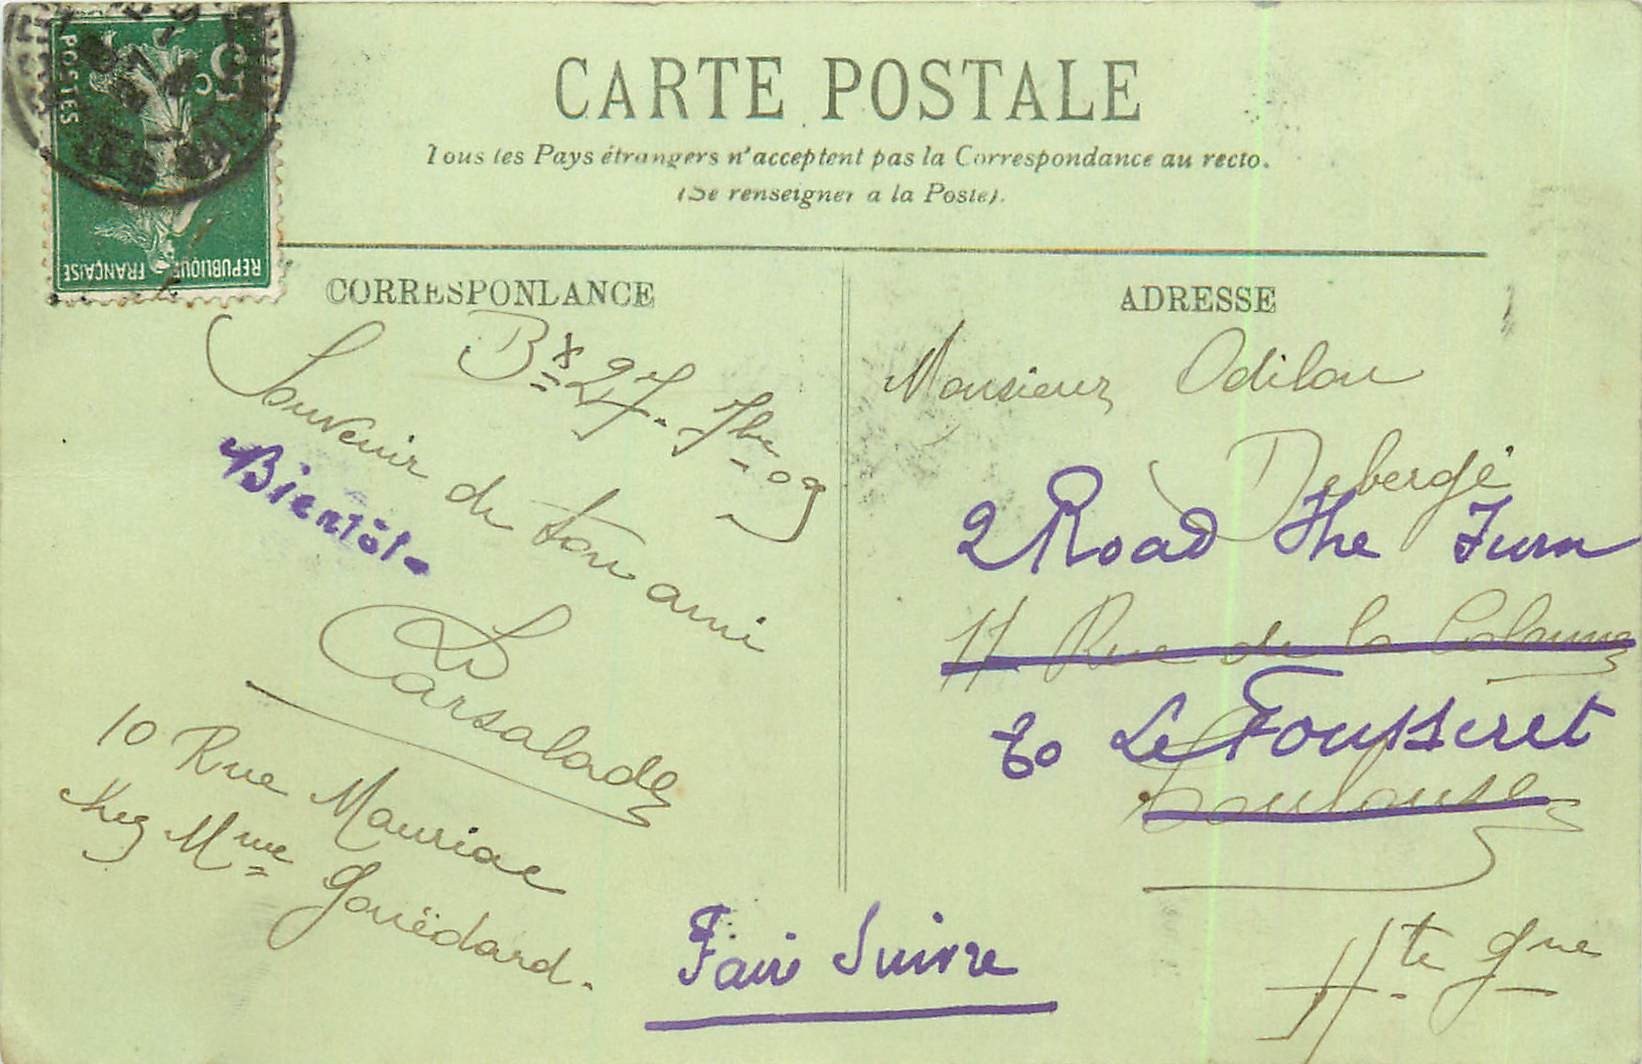 POSTES
5
REPUBLIQUE FRANÇAISE
CARTE POSTALE
Tous les Pays étrangers n'acceptent pas la Correspondance au recto.
(Se renseigner a la Poste).
CORRESPONDANCE
Bx 27. 7bre 09
Souvenir de ton ami
Bientôt
Carsalade
10 Rue Mauriac
chez Mme Gouëdard.
ADRESSE
Monsieur Odilon
Debergé
2 Road The Turn
11 Rue de la Colonne
Le Fousseret
Toulouse
Hte Gne
Faire Suivre